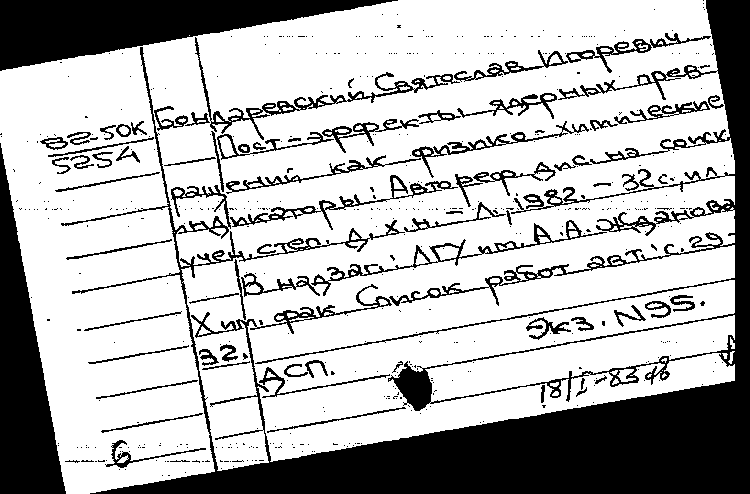 Бондаревский, Святослав Игоревич.
82-50к
5254
Пост-эффекты ядерных прев-
ращений как физико-химические
индикаторы: Автореф. дис. на соиск.
учен. степ. д. х. н. - Л., 1982. - 32 с., ил.
В надзаг.: ЛГУ им. А.А. Жданова.
Хим. фак. Список работ авт.: с. 29-
32.
Экз. N95.
ДСП.
18/I-83
6